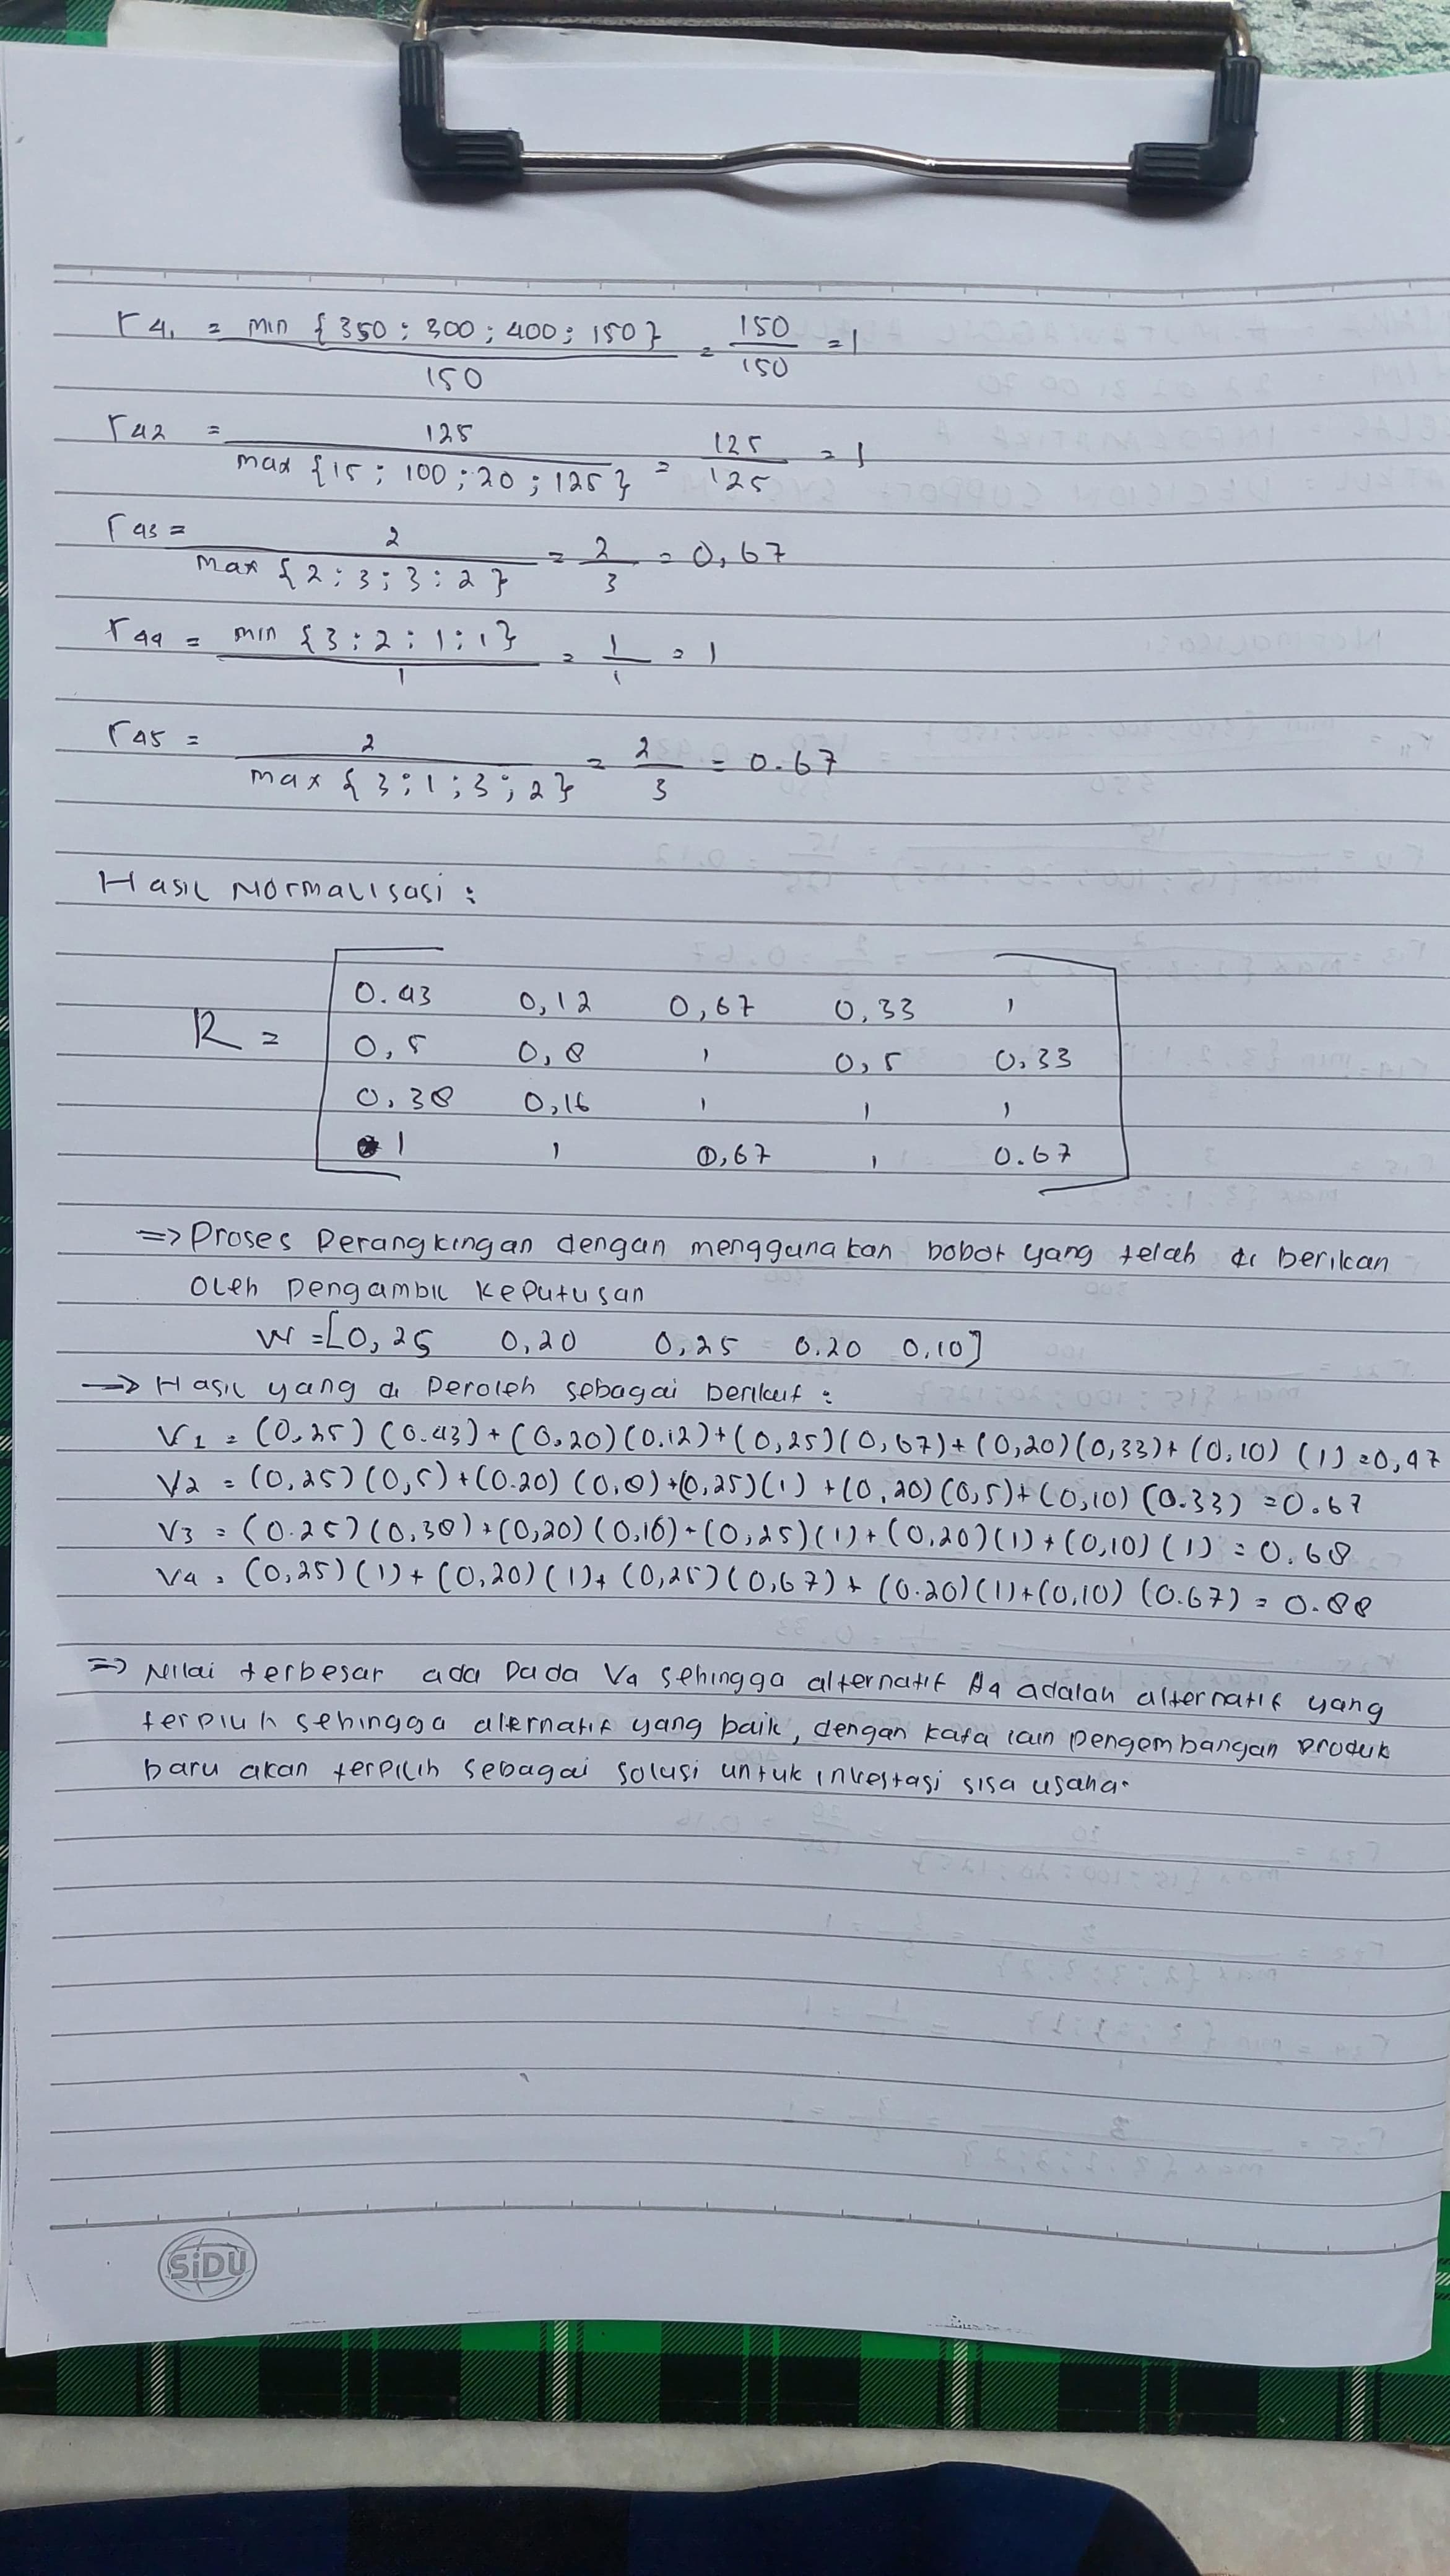 r41 = min {350 ; 300 ; 400 ; 150} / 150 = 150 / 150 = 1
r42 = 125 / max {15 ; 100 ; 20 ; 125} = 125 / 125 = 1
r43 = 2 / max {2 ; 3 ; 3 ; 2} = 2 / 3 = 0,67
r44 = min {3 ; 2 ; 1 ; 1} / 1 = 1 / 1 = 1
r45 = 2 / max {3 ; 1 ; 3 ; 2} = 2 / 3 = 0.67
Hasil Normalisasi :
R =
0.43 0,12 0,67 0,33 1
0,5 0,8 1 0,5 0,33
0,38 0,16 1 1 1
1 1 0,67 1 0.67
=> Proses Perangkingan dengan menggunakan bobot yang telah di berikan
oleh Pengambil Keputusan
W = [0,25 0,20 0,25 0.20 0,10]
→ Hasil yang di Peroleh sebagai berikut :
V1 = (0,25) (0.43) + (0,20) (0.12) + (0,25) (0,67) + (0,20) (0,33) + (0,10) (1) = 0,47
V2 = (0,25) (0,5) + (0.20) (0,8) + (0,25) (1) + (0,20) (0,5) + (0,10) (0.33) = 0.67
V3 = (0.25) (0,38) + (0,20) (0,16) + (0,25) (1) + (0,20) (1) + (0,10) (1) = 0.68
V4 = (0,25) (1) + (0,20) (1) + (0,25) (0,67) + (0.20) (1) + (0,10) (0.67) = 0.88
=> Nilai terbesar ada Pada V4 sehingga alternatif A4 adalah alternatif yang
terpilih sehingga alternatif yang baik, dengan kata lain pengembangan produk
baru akan terpilih sebagai solusi untuk investasi sisa usaha.
SiDU